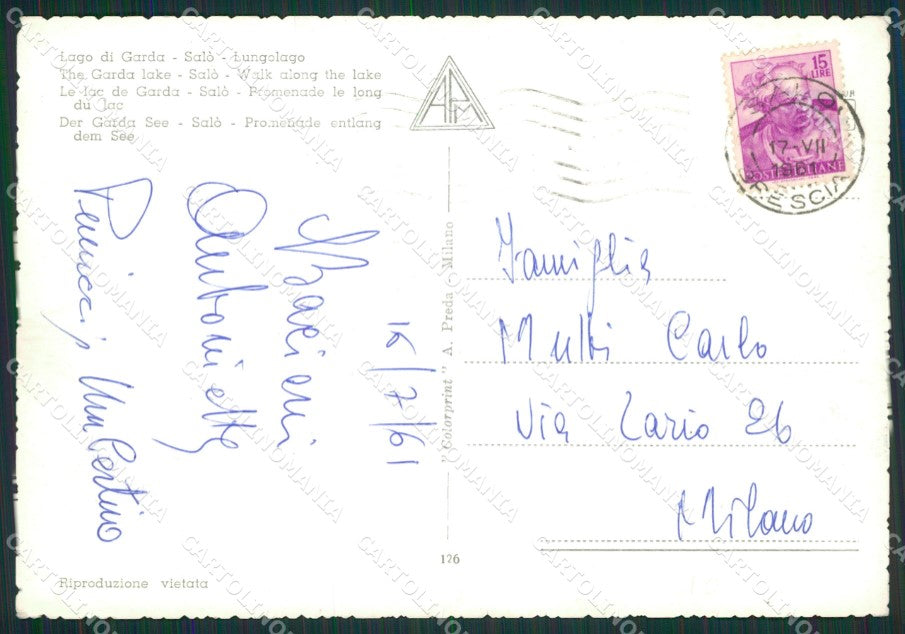 Lago di Garda - Salò - Lungolago
The Garda lake - Salò - Walk along the lake
Le lac de Garda - Salò - Promenade le long
du lac
Der Garda See - Salò - Promenade entlang
dem See
15
LIRE
POSTE ITALIANE
17-VII
1961
BRESCIA
16/7/61
Bacioni
Antonietta
Umbertino
"Colorprint" A. Preda - Milano
Famiglia
Carlo
Via Lario 26
Milano
126
Riproduzione vietata
CARTOLINOMANIA